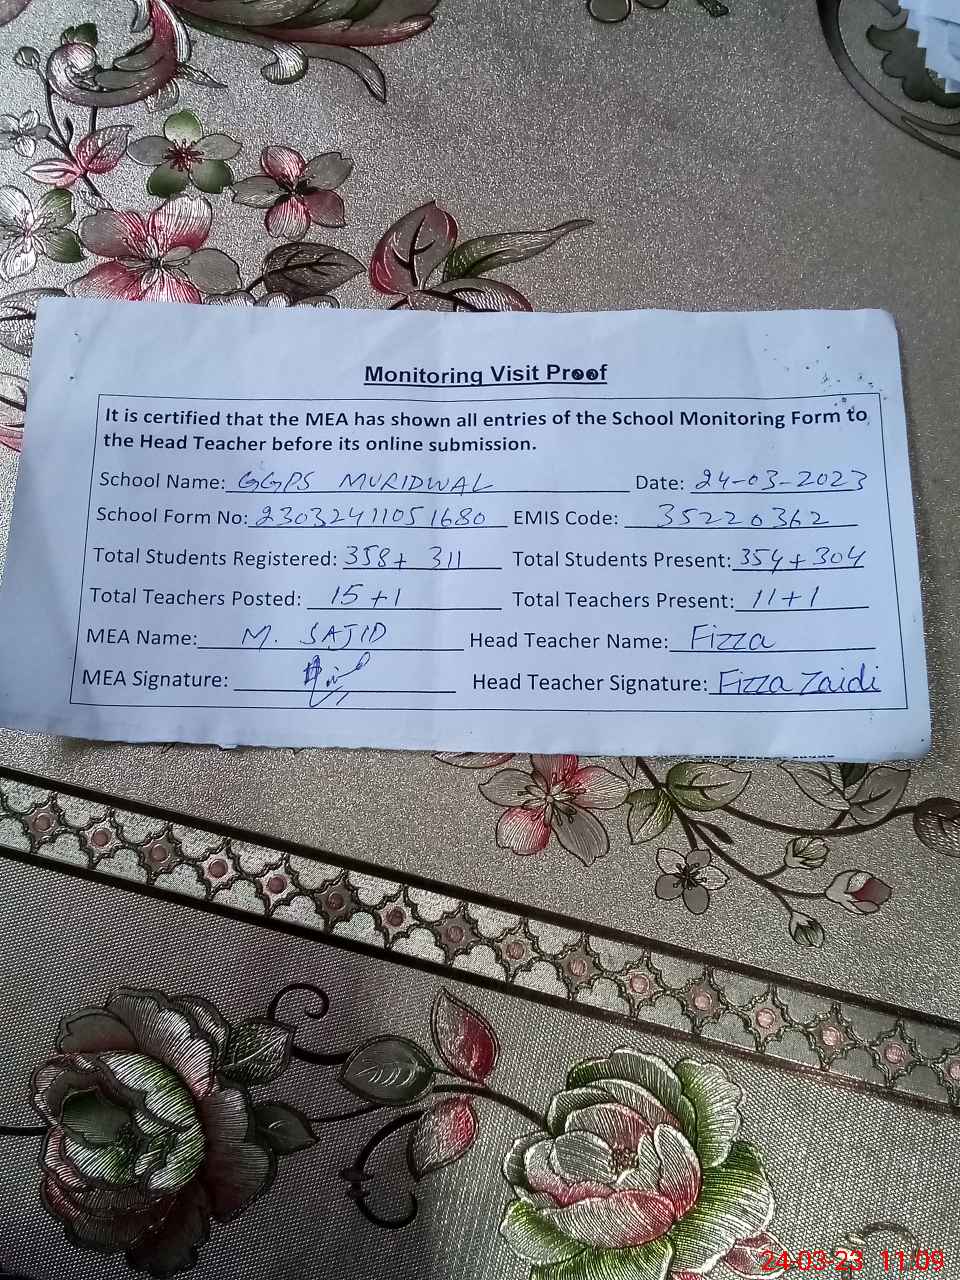 Monitoring Visit Proof
It is certified that the MEA has shown all entries of the School Monitoring Form to
the Head Teacher before its online submission.
School Name: GGPS MURIDWAL Date: 24-03-2023
School Form No: 23032411051680 EMIS Code: 35220362
Total Students Registered: 358+ 311 Total Students Present: 354+304
Total Teachers Posted: 15+1 Total Teachers Present: 11+1
MEA Name: M. SAJID Head Teacher Name: Fizza
MEA Signature: Head Teacher Signature: Fizza Zaidi
24-03-23 11:09